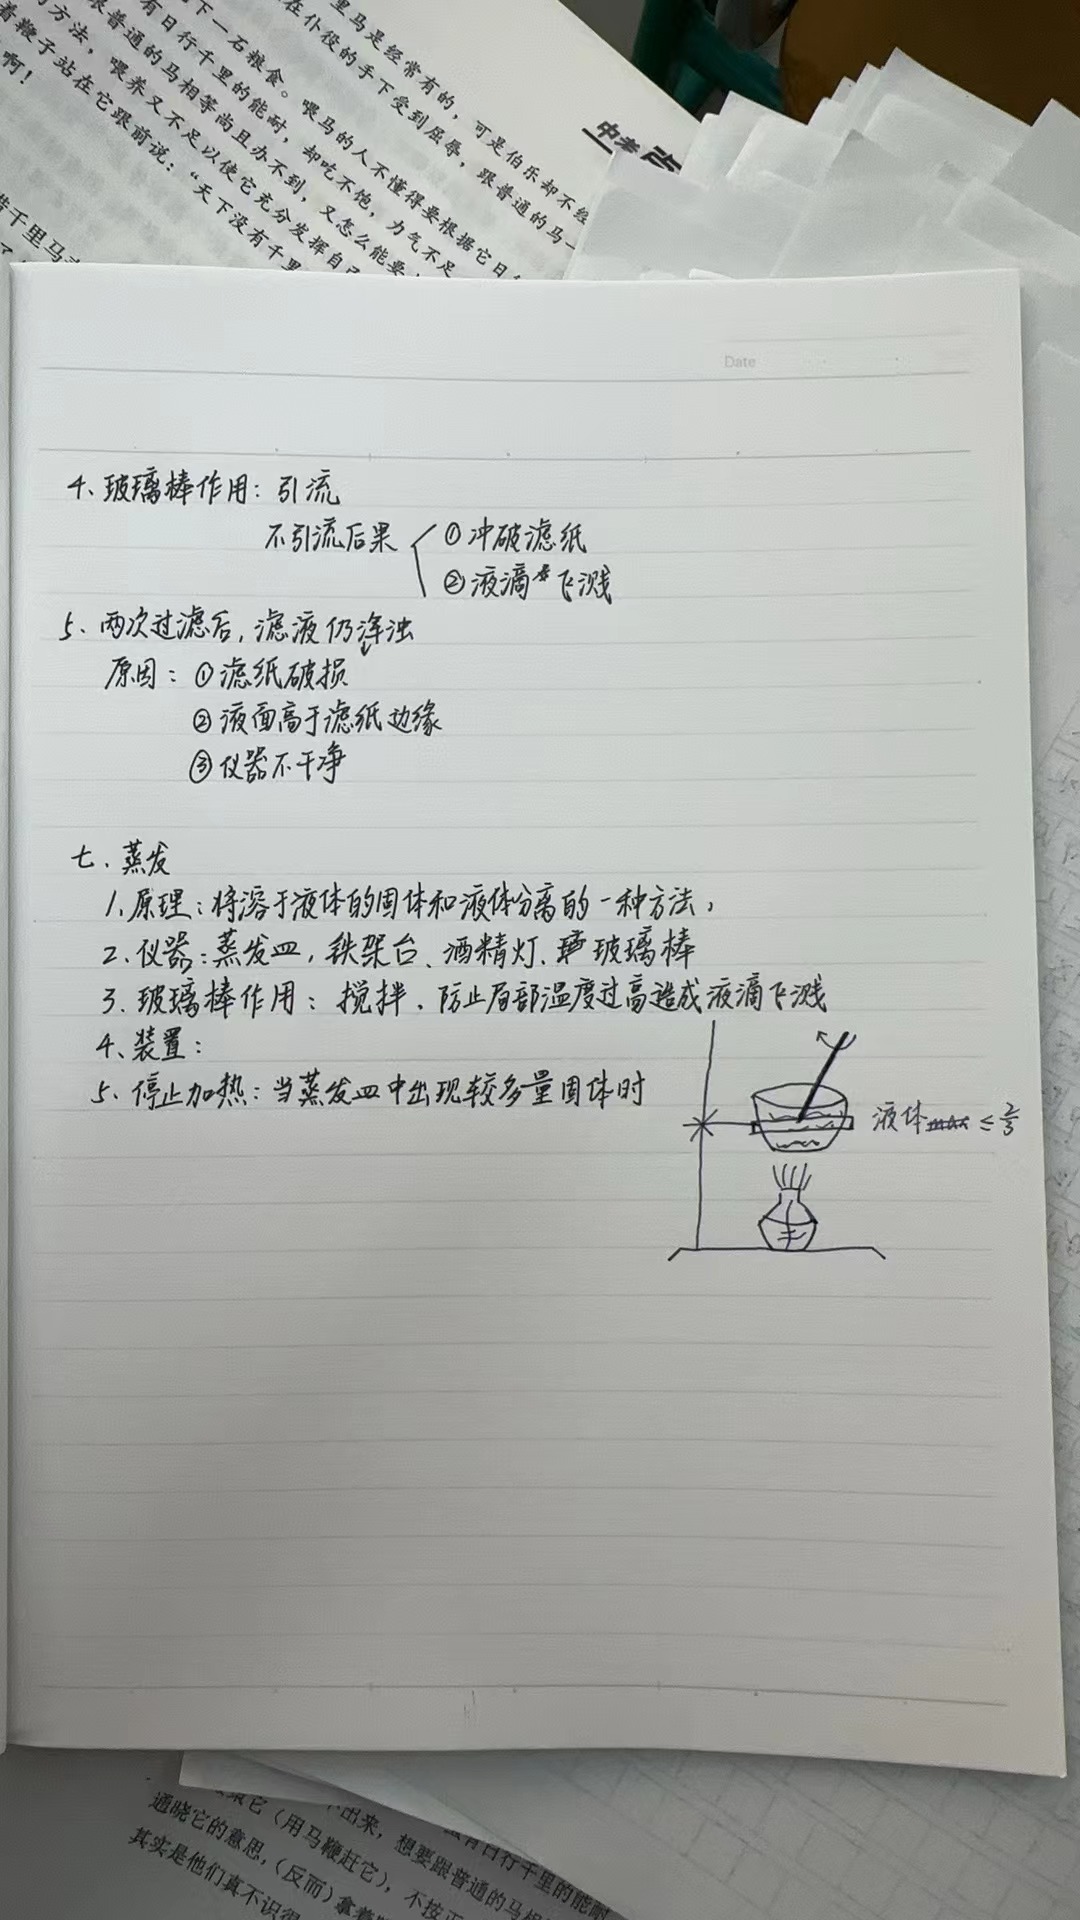 里马是经常有的，可是伯乐却不经
在仆役的手下受到屈辱，跟普通的马一
下一石粮食。喂马的人不懂得要根据它日
有日行千里的能耐，却吃不饱，力气不足
跟普通的马相等尚且办不到，又怎么能要
方法，喂养又不足以使它充分发挥自己
着鞭子站在它跟前说：“天下没有千里
啊！
千里马
中考
Date
4、玻璃棒作用：引流
不引流后果 ①冲破滤纸
②液滴飞溅
5、两次过滤后，滤液仍浑浊
原因：①滤纸破损
②液面高于滤纸边缘
③仪器不干净
七、蒸发
1、原理：将溶于液体的固体和液体分离的一种方法，
2、仪器：蒸发皿，铁架台、酒精灯、玻璃棒
3、玻璃棒作用：搅拌、防止局部温度过高造成液滴飞溅
4、装置：
5、停止加热：当蒸发皿中出现较多量固体时
液体≤2/3
出来，想要跟普通的马相
有日行千里的能耐
它（用马鞭赶它），不按正
通晓它的意思，（反而）拿着
其实是他们真不识得